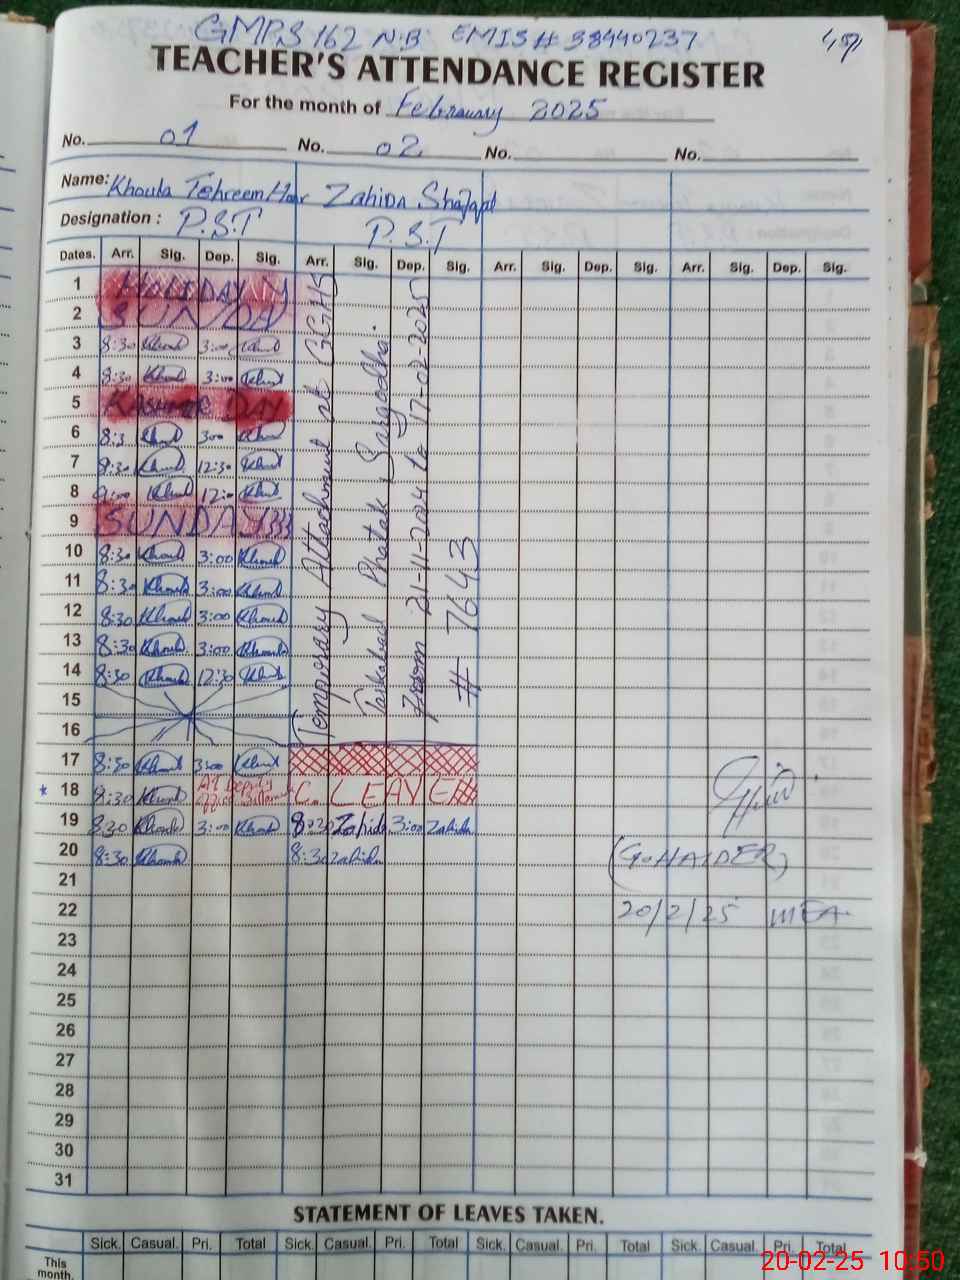 GMPS 162 N.B EMIS# 38440237
TEACHER'S ATTENDANCE REGISTER
For the month of February 2025
No. 01 No. 02 No. No.
Name: Khoula Tehreem Zahida
Designation : P.S.T P.S.T
Dates. Arr. Sig. Dep. Sig. Arr. Sig. Dep. Sig. Arr. Sig. Dep. Sig. Arr. Sig. Dep. Sig.
1 HOLIDAY
2 SUNDAY
3 8:30 3:00
4 8:30 3:00
5 KASHMIR DAY
6 8:3 300
7 8:30 12:30
8 9:00 12:00
9 SUNDAY
10 8:30 3:00
11 8:30 3:00
12 8:30 3:00
13 8:30 3:00
14 8:30 12:30
15
16
Temporary Attachment at GGHS
Phatak Sargodha.
From 21-11-2024 to 17-02-2025
# 7643
17 8:30 3:00
* 18 8:30 At Deputy office C. LEAVE
19 8:30 3:00 8:30 Zahida 3:00 Zahida
20 8:30 8:30 Zahida
(G. HAIDER)
21
22 20/2/25 MEA
23
24
25
26
27
28
29
30
31
STATEMENT OF LEAVES TAKEN.
Sick. Casual. Pri. Total Sick. Casual. Pri. Total Sick. Casual. Pri. Total Sick. Casual. Pri. Total
This month.
20-02-25 10:50